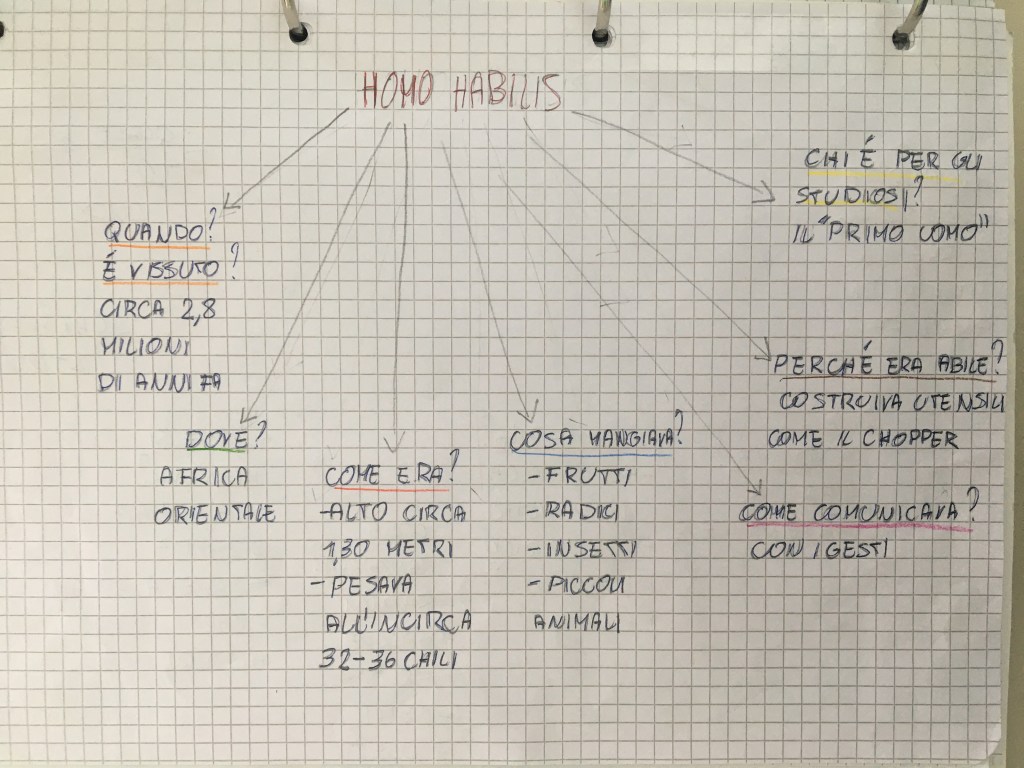 HOMO HABILIS
QUANDO?
É VISSUTO?
CIRCA 2,8
MILIONI
DI ANNI FA
DOVE?
AFRICA
ORIENTALE
COME ERA?
-ALTO CIRCA
1,30 METRI
-PESAVA
ALL'INCIRCA
32-36 CHILI
COSA MANGIAVA?
-FRUTTI
-RADICI
-INSETTI
-PICCOLI
ANIMALI
COME COMUNICAVA?
CON I GESTI
PERCHÉ ERA ABILE?
COSTRUIVA UTENSILI
COME IL CHOPPER
CHI É PER GLI
STUDIOSI?
IL "PRIMO UOMO"